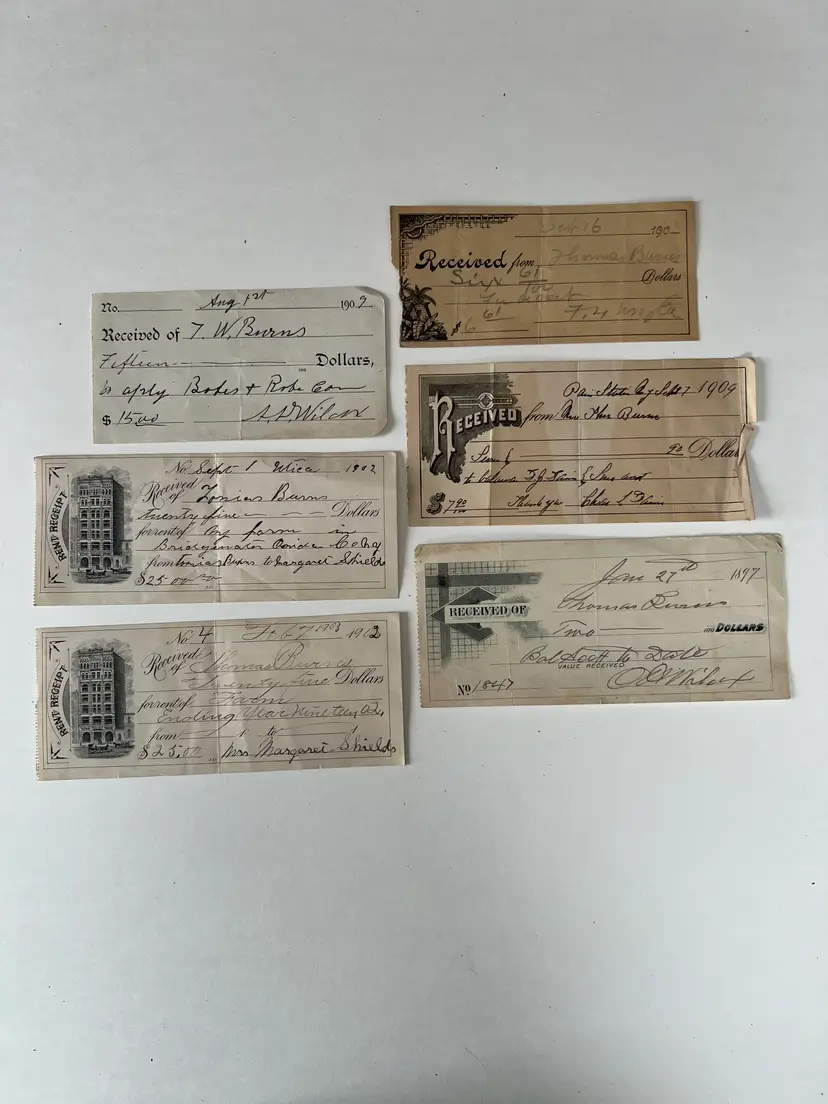 No. Aug 1st 1909
Received of T. W. Burns
Fifteen Dollars,
to aply Bobes + Robe Com
$ 15.00 Wilcox
RENT RECEIPT
No. Sept 1 Utica 1902
Received of Burns
twenty five Dollars
for rent of my farm in
Bridgewater Oneida Co
from Burns to Margaret Shields
$25.00
RENT RECEIPT
No. 4 Feb 7 1903 1902
Received of Thomas Burns
Twenty Five Dollars
for rent of Farm
Ending Year Nineteen 02,
from to
$25.00 Mrs Margaret Shields
16 190
Received from Thomas Burns
Six 61/100 Dollars
$ 6 61
Sept 7 1909
RECEIVED from Mr Thos Burns
Seven & 90 Dollars
to balance & Son acct
$ 7 90/100 Thank you Chas
Jan 27th 1897
RECEIVED OF Thomas Burns
Two DOLLARS
Bal to Date
VALUE RECEIVED
No 1847 Wilcox